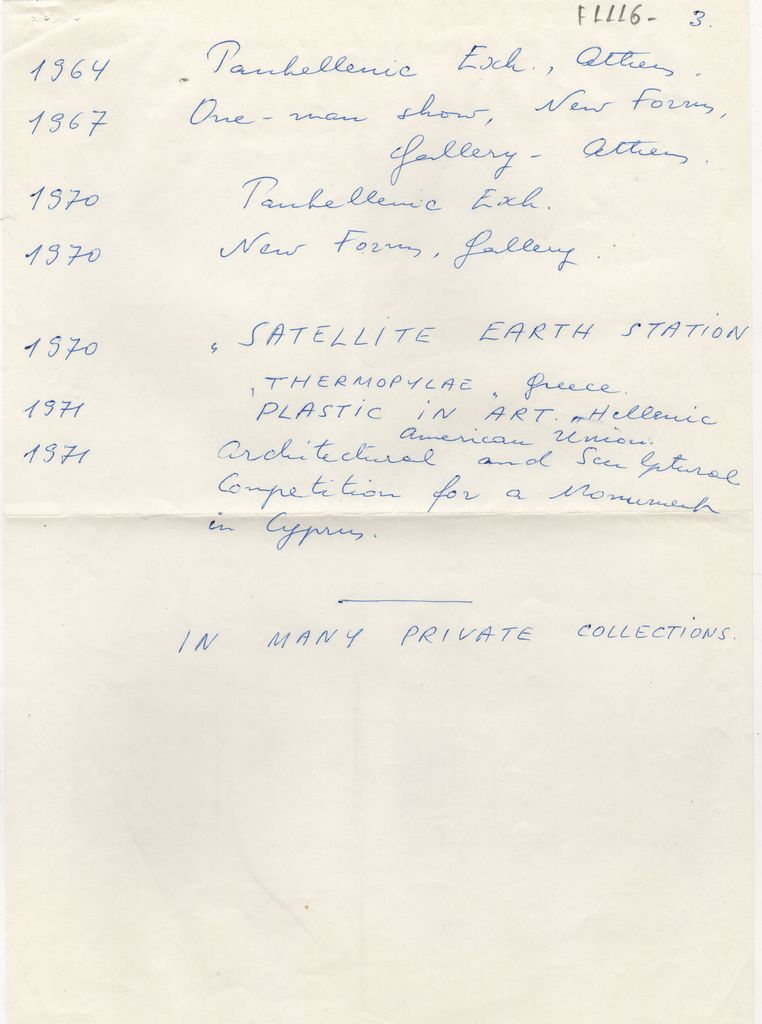 F1116- 3.
1964 Panhellenic Exh., Athens.
1967 One-man show, New Forms,
Gallery - Athens.
1970 Panhellenic Exh.
1970 New Forms, Gallery.
1970 "SATELLITE EARTH STATION
"THERMOPYLAE" Greece.
1971 PLASTIC IN ART. "Hellenic
American Union.
1971 Architectural and Sculptural
Competition for a Monument
in Cyprus.
IN MANY PRIVATE COLLECTIONS.